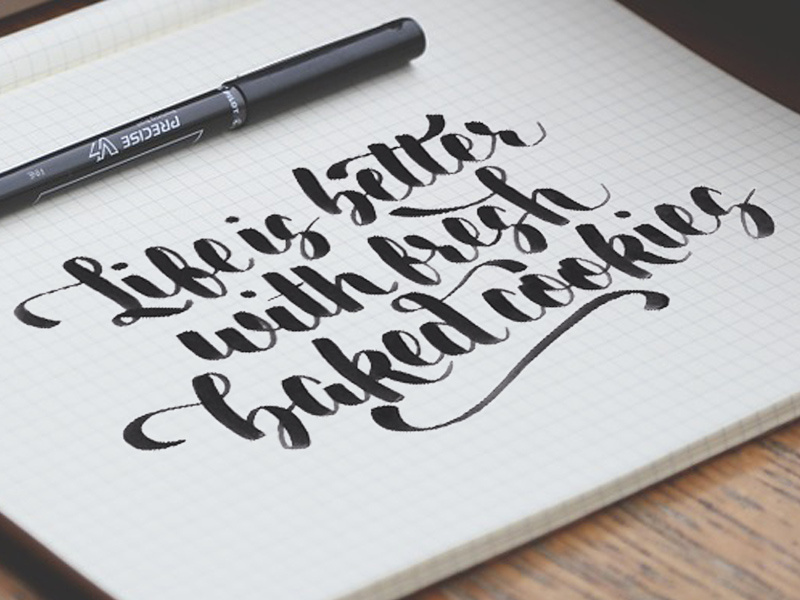 PILOT
PRECISE V7
FINE
Life is better
with fresh
baked cookies